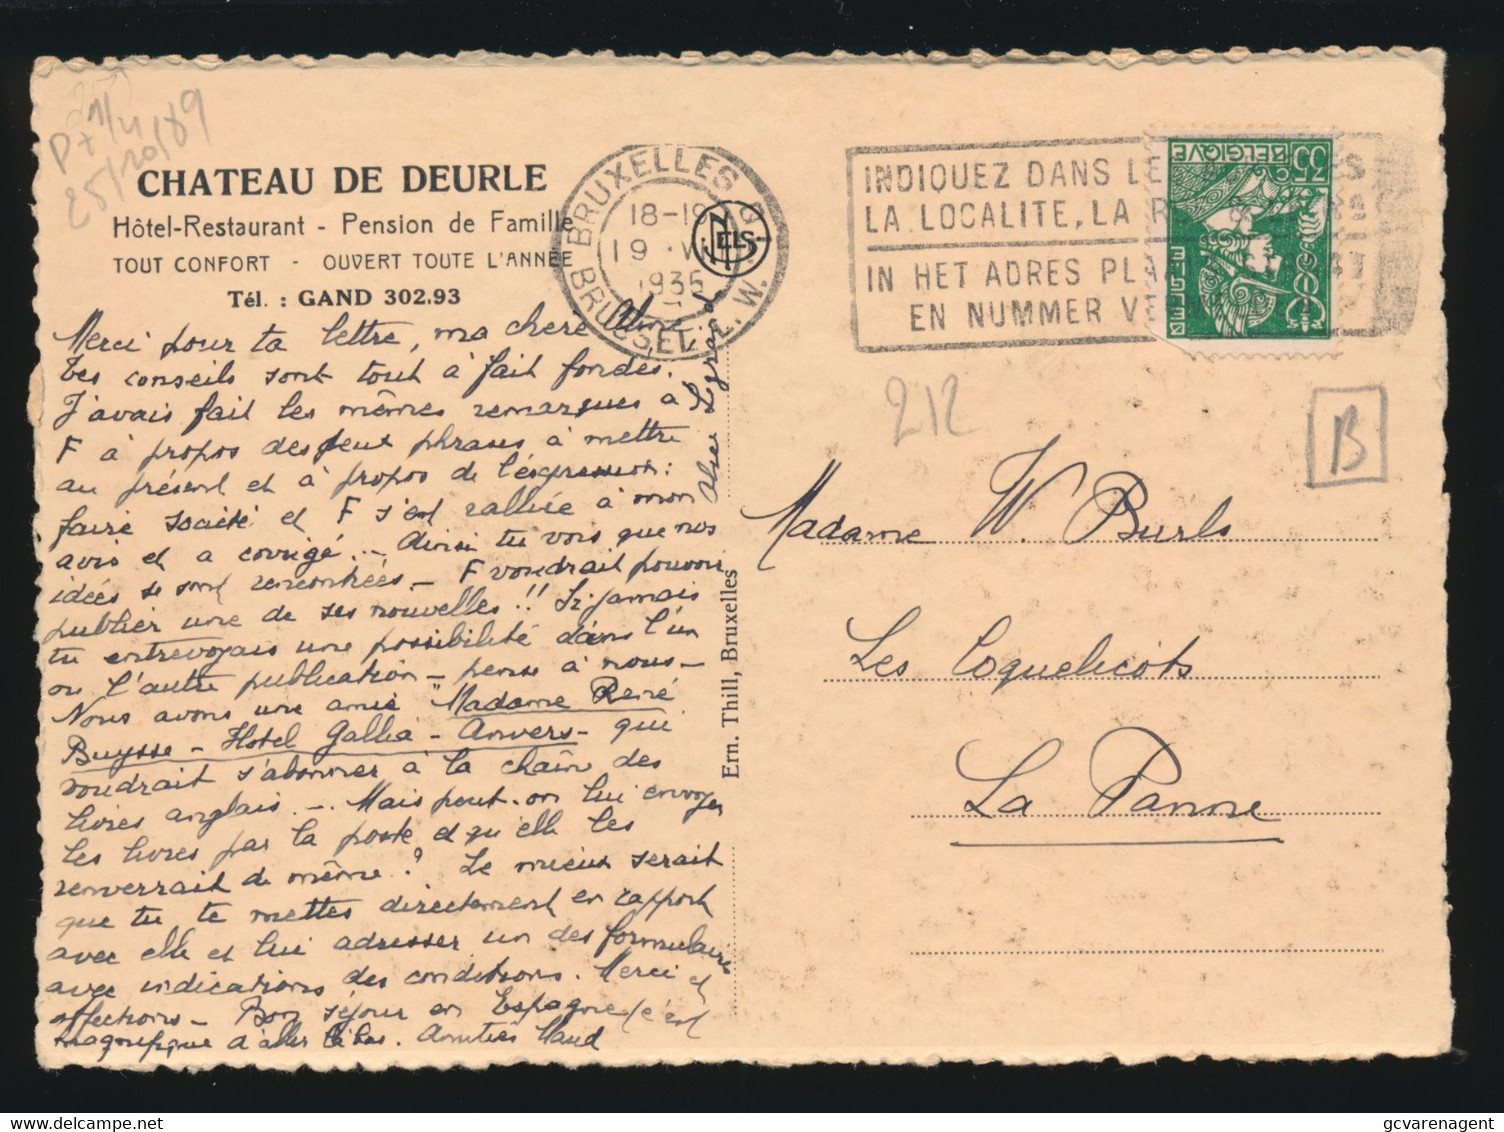 P+ 1/4
25/10/89
CHATEAU DE DEURLE
Hôtel-Restaurant - Pension de Famille
TOUT CONFORT - OUVERT TOUTE L'ANNÉE
Tél. : GAND 302.93
Merci pour ta lettre, ma chere Aline.
Tes conseils sont tout à fait fondés.
J'avais fait les mêmes remarques à
F à propos des deux phrases à mettre
au présent et à propos de l'expression:
faire société et F s'est ralliée à mon
avis et a corrigé. - Ainsi tu vois que nos
idées se sont rencontrées - F voudrait pouvoir
publier une de ses nouvelles !! Si jamais
tu entrevoyais une possibilité dans l'un
ou l'autre publication - pense à nous -
Nous avons une amie "Madame René
Buysse - Hotel Gallia - Anvers - qui
voudrait s'abonner à la chaîne des
livres anglais -. Mais peut-on lui envoyer
les livres par la poste et qu'elle les
renverrait de même? Le mieux serait
que tu te mettes directement en rapport
avec elle et lui adresser un des formulaires
avec indications des conditions. Merci et
affections - Bon séjour en Espagne (c'est
magnifique d'aller là bas. Amitiés Maud
Legrand
BRUXELLES
18-19
19 ·VII
1935
BRUSSEL
NELS
Ern. Thill, Bruxelles
INDIQUEZ DANS LE
LA LOCALITE, LA R
IN HET ADRES PLA
EN NUMMER VE
BELGIQUE
35
BELGIE
212
B
Madame W. Burls
Les Coquelicots
La Panne
gcvarenagent